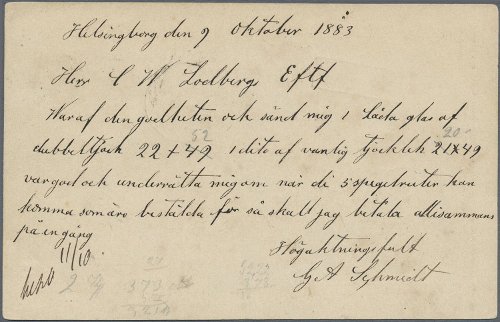 Helsingborg den 9 Oktober 1883
Herr C W Lodbergs Eftf
Var af den godheten och sänd mig 1 Låda glas af
52 20
dubbeltjock 22 + 49 1 dito af vanlig tjocklek 21x49
var god och underrätta mig om när de 5 spegelrutor kan
komma som äro bestälda för så skall jag betala allisammans
på en gång
Högaktningsfult
G A Schmidt
11/10
27
373
3210